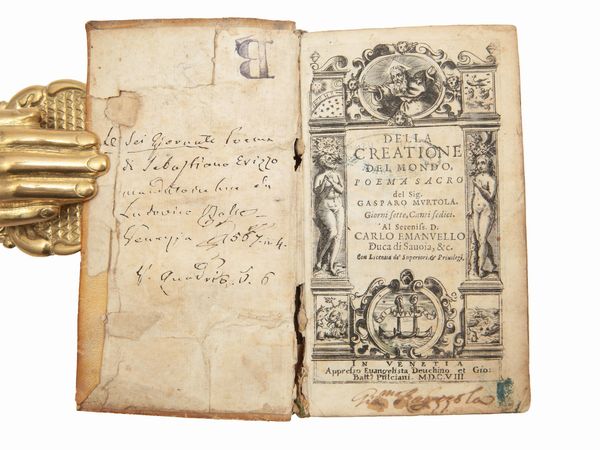 B
Le Sei Giornate Poema
di Sebastiano Erizzo
mandato in luce da
Ludovico Dolce
Venezia 1567 in 4.
V. Quadrio
DELLA
CREATIONE
DEL MONDO,
POEMA SACRO
del Sig.
GASPARO MVRTOLA.
Giorni sette, Canti sedici.
Al Sereniss. D.
CARLO EMANVELLO
Duca di Sauoia, &c.
Con Licenza de' Superiori, & Priuilegi.
IN VENETIA
Appresso Euangelista Deuchino et Gio:
Batt.ª Pulciani. MDCVIII